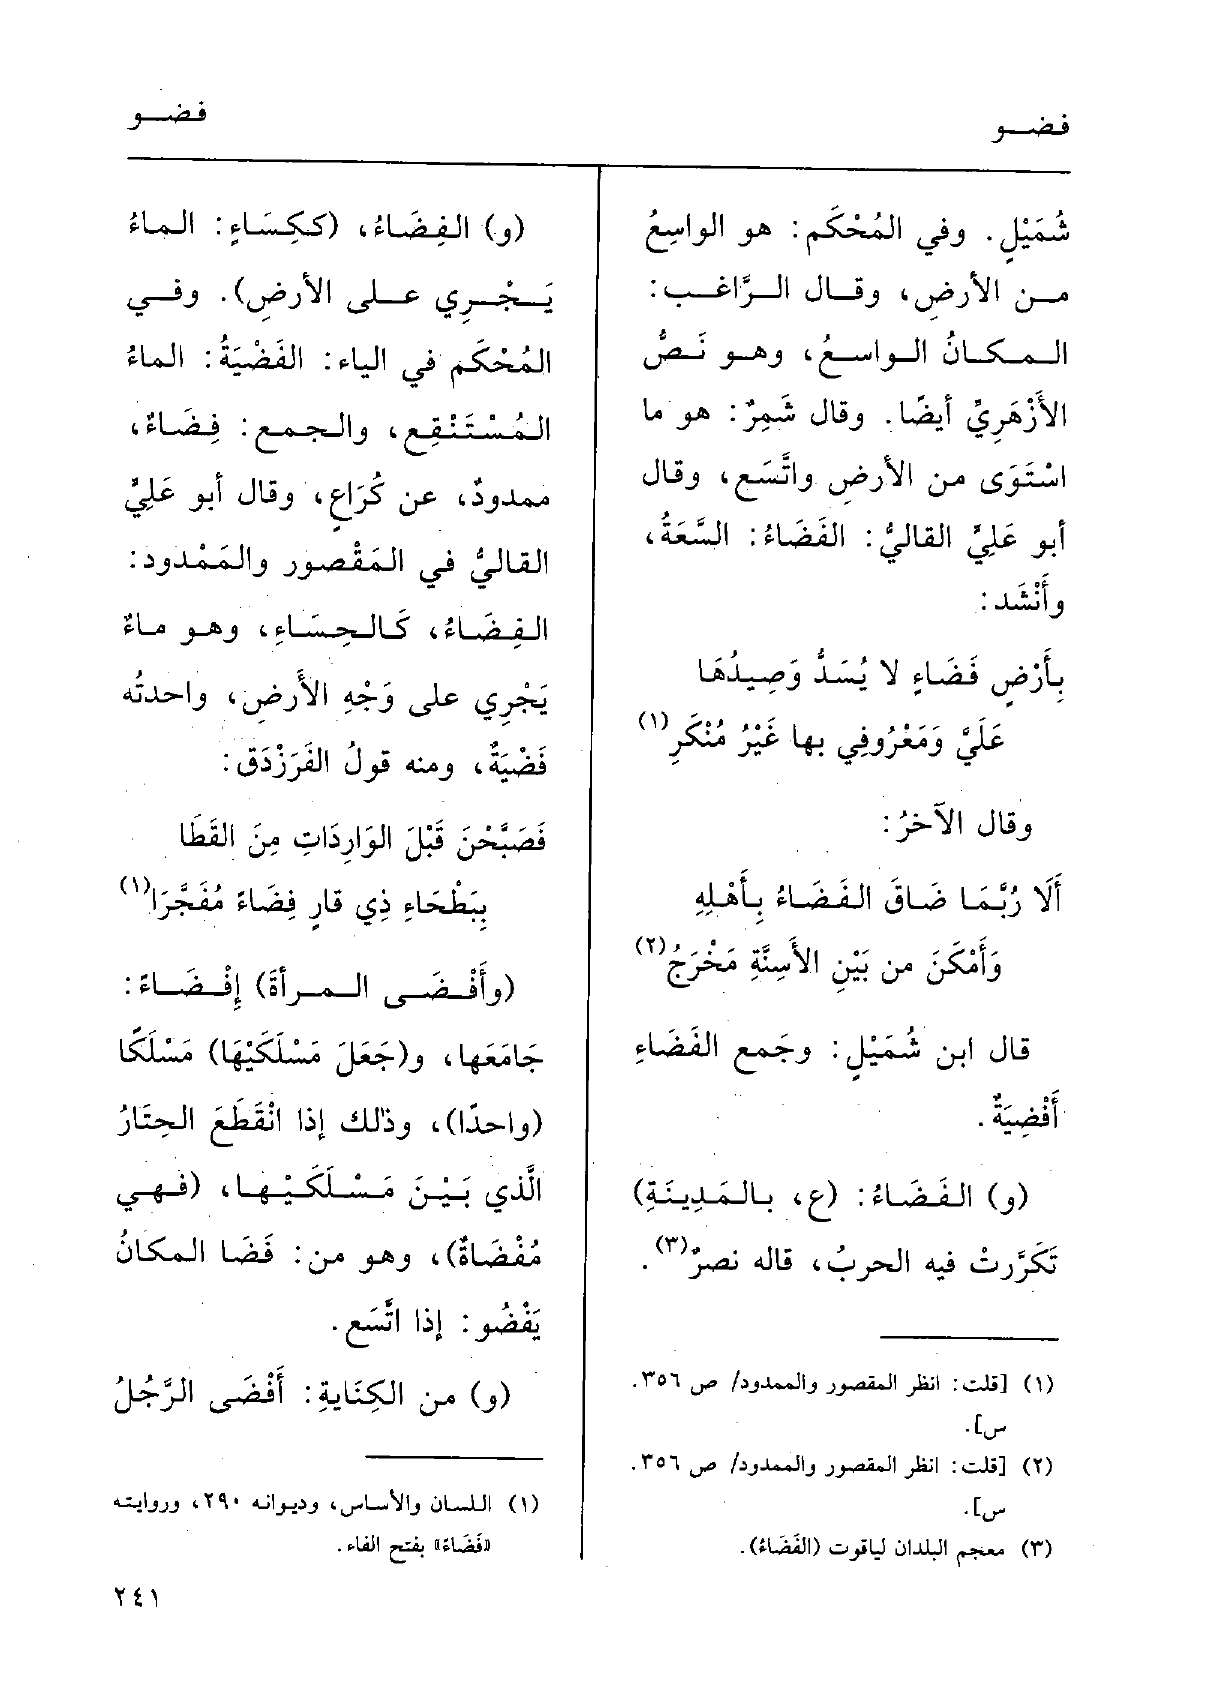 فضو
فضو
شُمَيْلٍ. وفي المُحْكَم: هو الواسِعُ
من الأرضِ، وقال الرَّاغب:
المكانُ الواسعُ، وهو نَصُّ
الأَزْهَرِيِّ أيضًا. وقال شَمِرٌ: هو ما
اسْتَوَى من الأرضِ واتَّسَع، وقال
أبو عَلِيٍّ القاليُّ: الفَضَاءُ: السَّعَةُ،
وأَنْشَد:
بِأَرْضِ فَضَاءٍ لا يُسَدُّ وَصِيدُهَا
عَلَيَّ وَمَعْرُوفِي بها غَيْرُ مُنْكَرِ(١)
وقال الآخرُ:
أَلَا رُبَّمَا ضَاقَ الفَضَاءُ بِأَهْلِهِ
وَأَمْكَنَ من بَيْنِ الأَسِنَّةِ مَخْرَجُ(٢)
قال ابن شُمَيْلٍ: وجَمع الفَضَاءِ
أَفْضِيَةٌ.
(و) الفَضَاءُ: (ع، بالمَدِينَةِ)
تَكَرَّرتْ فيه الحربُ، قاله نصرٌ(٣).
(١) [قلت: انظر المقصور والممدود/ ص ٣٥٦.
س].
(٢) [قلت: انظر المقصور والممدود/ ص ٣٥٦.
س].
(٣) معجم البلدان لياقوت (الفَضَاءُ).
(و) الفِضَاءُ، (ككِسَاءٍ: الماءُ
يَجْرِي على الأرضِ). وفي
المُحْكَم في الياء: الفَضْيَةُ: الماءُ
المُسْتَنْقِع، والجمع: فِضَاءٌ،
ممدودٌ، عن كُرَاعٍ، وقال أبو عَلِيٍّ
القاليُّ في المَقْصور والمَمْدود:
الفِضَاءُ، كَالحِسَاءِ، وهو ماءٌ
يَجْرِي على وَجْهِ الأَرضِ، واحدتُه
فَضْيَةٌ، ومنه قولُ الفَرَزْدَق:
فَصَبَّحْنَ قَبْلَ الوَارِدَاتِ مِنَ القَطَا
بِبَطْحَاءِ ذِي قارٍ فِضَاءً مُفَجَّرَا(١)
(وأَفْضَى المرأةَ) إِفْضَاءً:
جَامَعَها، و(جَعَلَ مَسْلَكَيْهَا) مَسْلَكًا
(واحدًا)، وذلك إذا انْقَطَعَ الحِتَارُ
الَّذي بَيْنَ مَسْلَكَيْها، (فهي
مُفْضَاةٌ)، وهو من: فَضَا المكانُ
يَفْضُو: إذا اتَّسَع.
(و) من الكِنَايةِ: أَفْضَى الرَّجُلُ
(١) اللسان والأساس، وديوانه ٢٩٠، وروايته
«فَضَاءً» بفتح الفاء.
٢٤١